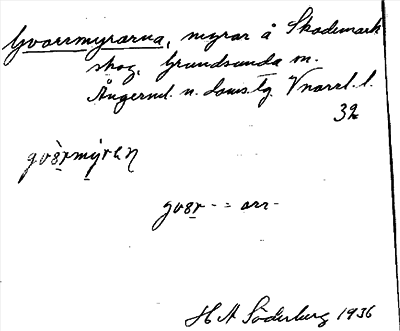 Gvarrmyrarna, myrar å Skademark
skog, Grundsunda sn.
Ångerml. n. doms.tg. Vnorrl. l.
32
gvàrmýran
gvar - = arr-
H A Söderberg 1936